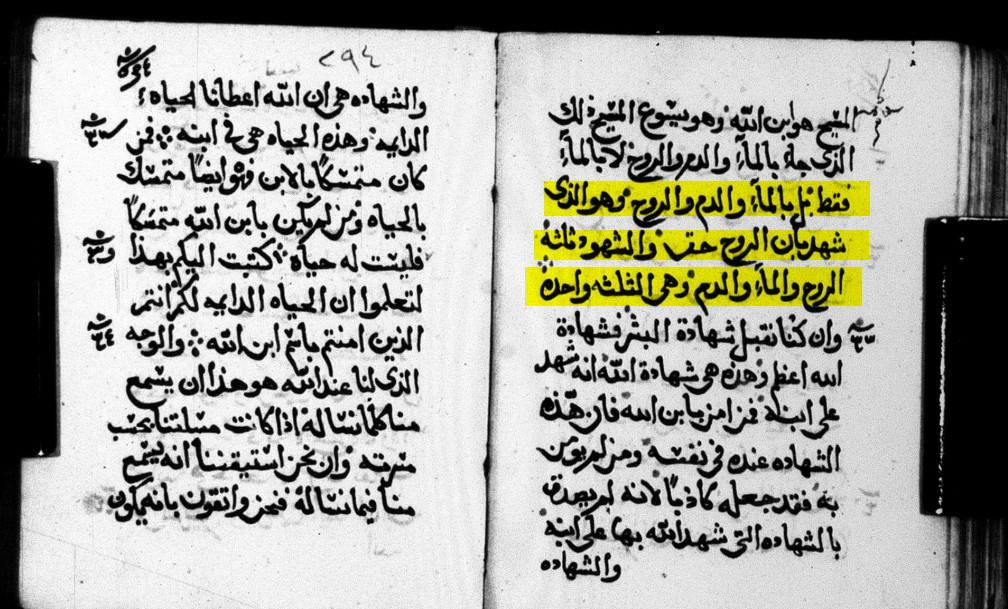 المسيح هو ابن الله وهو يسوع المسيح ذلك
الذى جاء بالماء والدم والروح لا بالماء
فقط بل بالماء والدم والروح وهو الذى
شهد بان الروح حق والشهود ثلثة
الروح والماء والدم وهى الثلثه واحدة
وان كنا نقبل شهادة البشر فشهادة
الله اعظم وهذه هى شهادة الله انه شهد
على ابنه فمن امن بابن الله فان هذه
الشهاده عنده فى نفسه ومن لم يومن
به فقد جعله كاذبا لانه لم يصدق
بالشهاده التى شهد الله بها على ابنه
والشهاده
٢٩٤
والشهاده هى ان الله اعطانا الحياه
الدايمه وهذه الحياه هى فى ابنه فمن
كان متمسكا بالابن فهو ايضا متمسك
بالحياه ومن لم يكن بابن الله متمسكا
فليست له حياه كتبت اليكم بهذا
لتعلموا ان الحياه الدايمه لكم انتم
الذين امنتم باسم ابن الله والوجه
الذى لنا عند الله هو هذا ان يسمع
منا كلما نساله اذا كانت مسلتنا بحسب
مسرته وان نحن استيقننا انه يسمع
منا فيما نساله فنحن واثقون بانه يكون